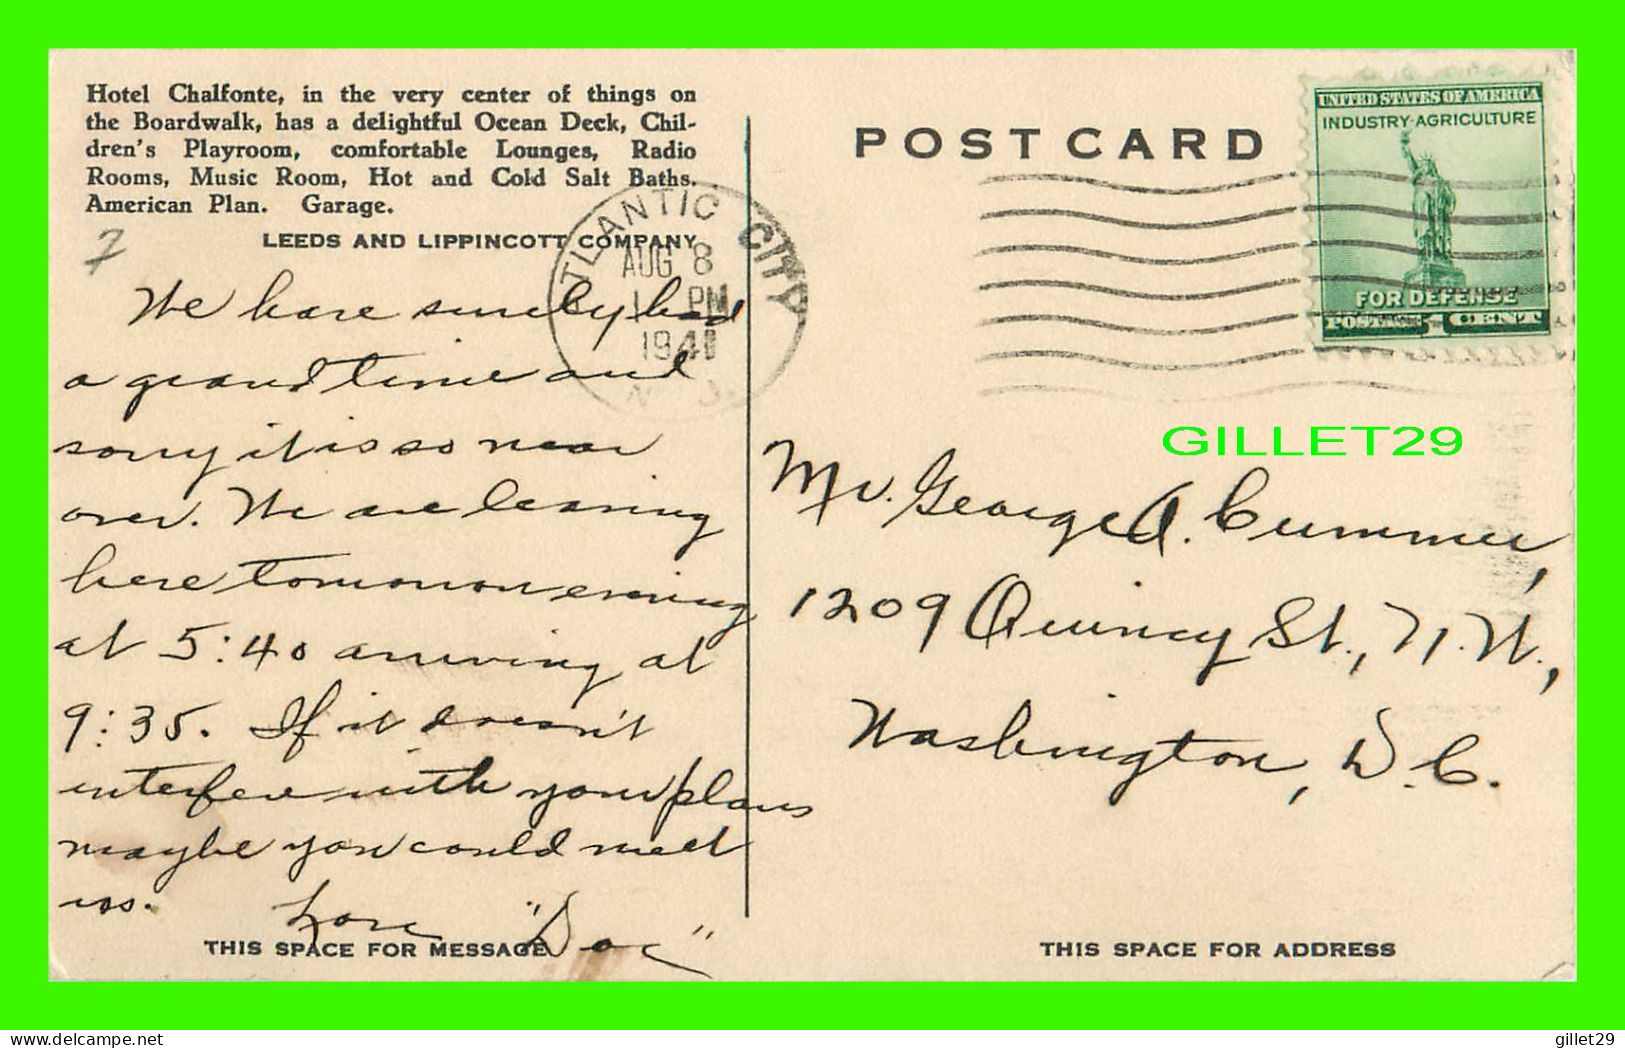 Hotel Chalfonte, in the very center of things on
the Boardwalk, has a delightful Ocean Deck, Chil-
dren's Playroom, comfortable Lounges, Radio
Rooms, Music Room, Hot and Cold Salt Baths.
American Plan. Garage.
LEEDS AND LIPPINCOTT COMPANY
7
We have surely had
a grand time and
sorry it is so near
over. We are leaving
here tomorrow evening
at 5:40 arriving at
9:35. If it doesn't
interfere with your plans
maybe you could meet
us. Love "Doc"
THIS SPACE FOR MESSAGE
ATLANTIC CITY
AUG 8
1 PM
1941
N.J.
POST CARD
UNITED STATES OF AMERICA
INDUSTRY·AGRICULTURE
FOR DEFENSE
POSTAGE 1 CENT
GILLET29
Mr. George A. Cummer,
1209 Quincy St., N.W.,
Washington, D.C.
THIS SPACE FOR ADDRESS
delcampe.net
gillet29